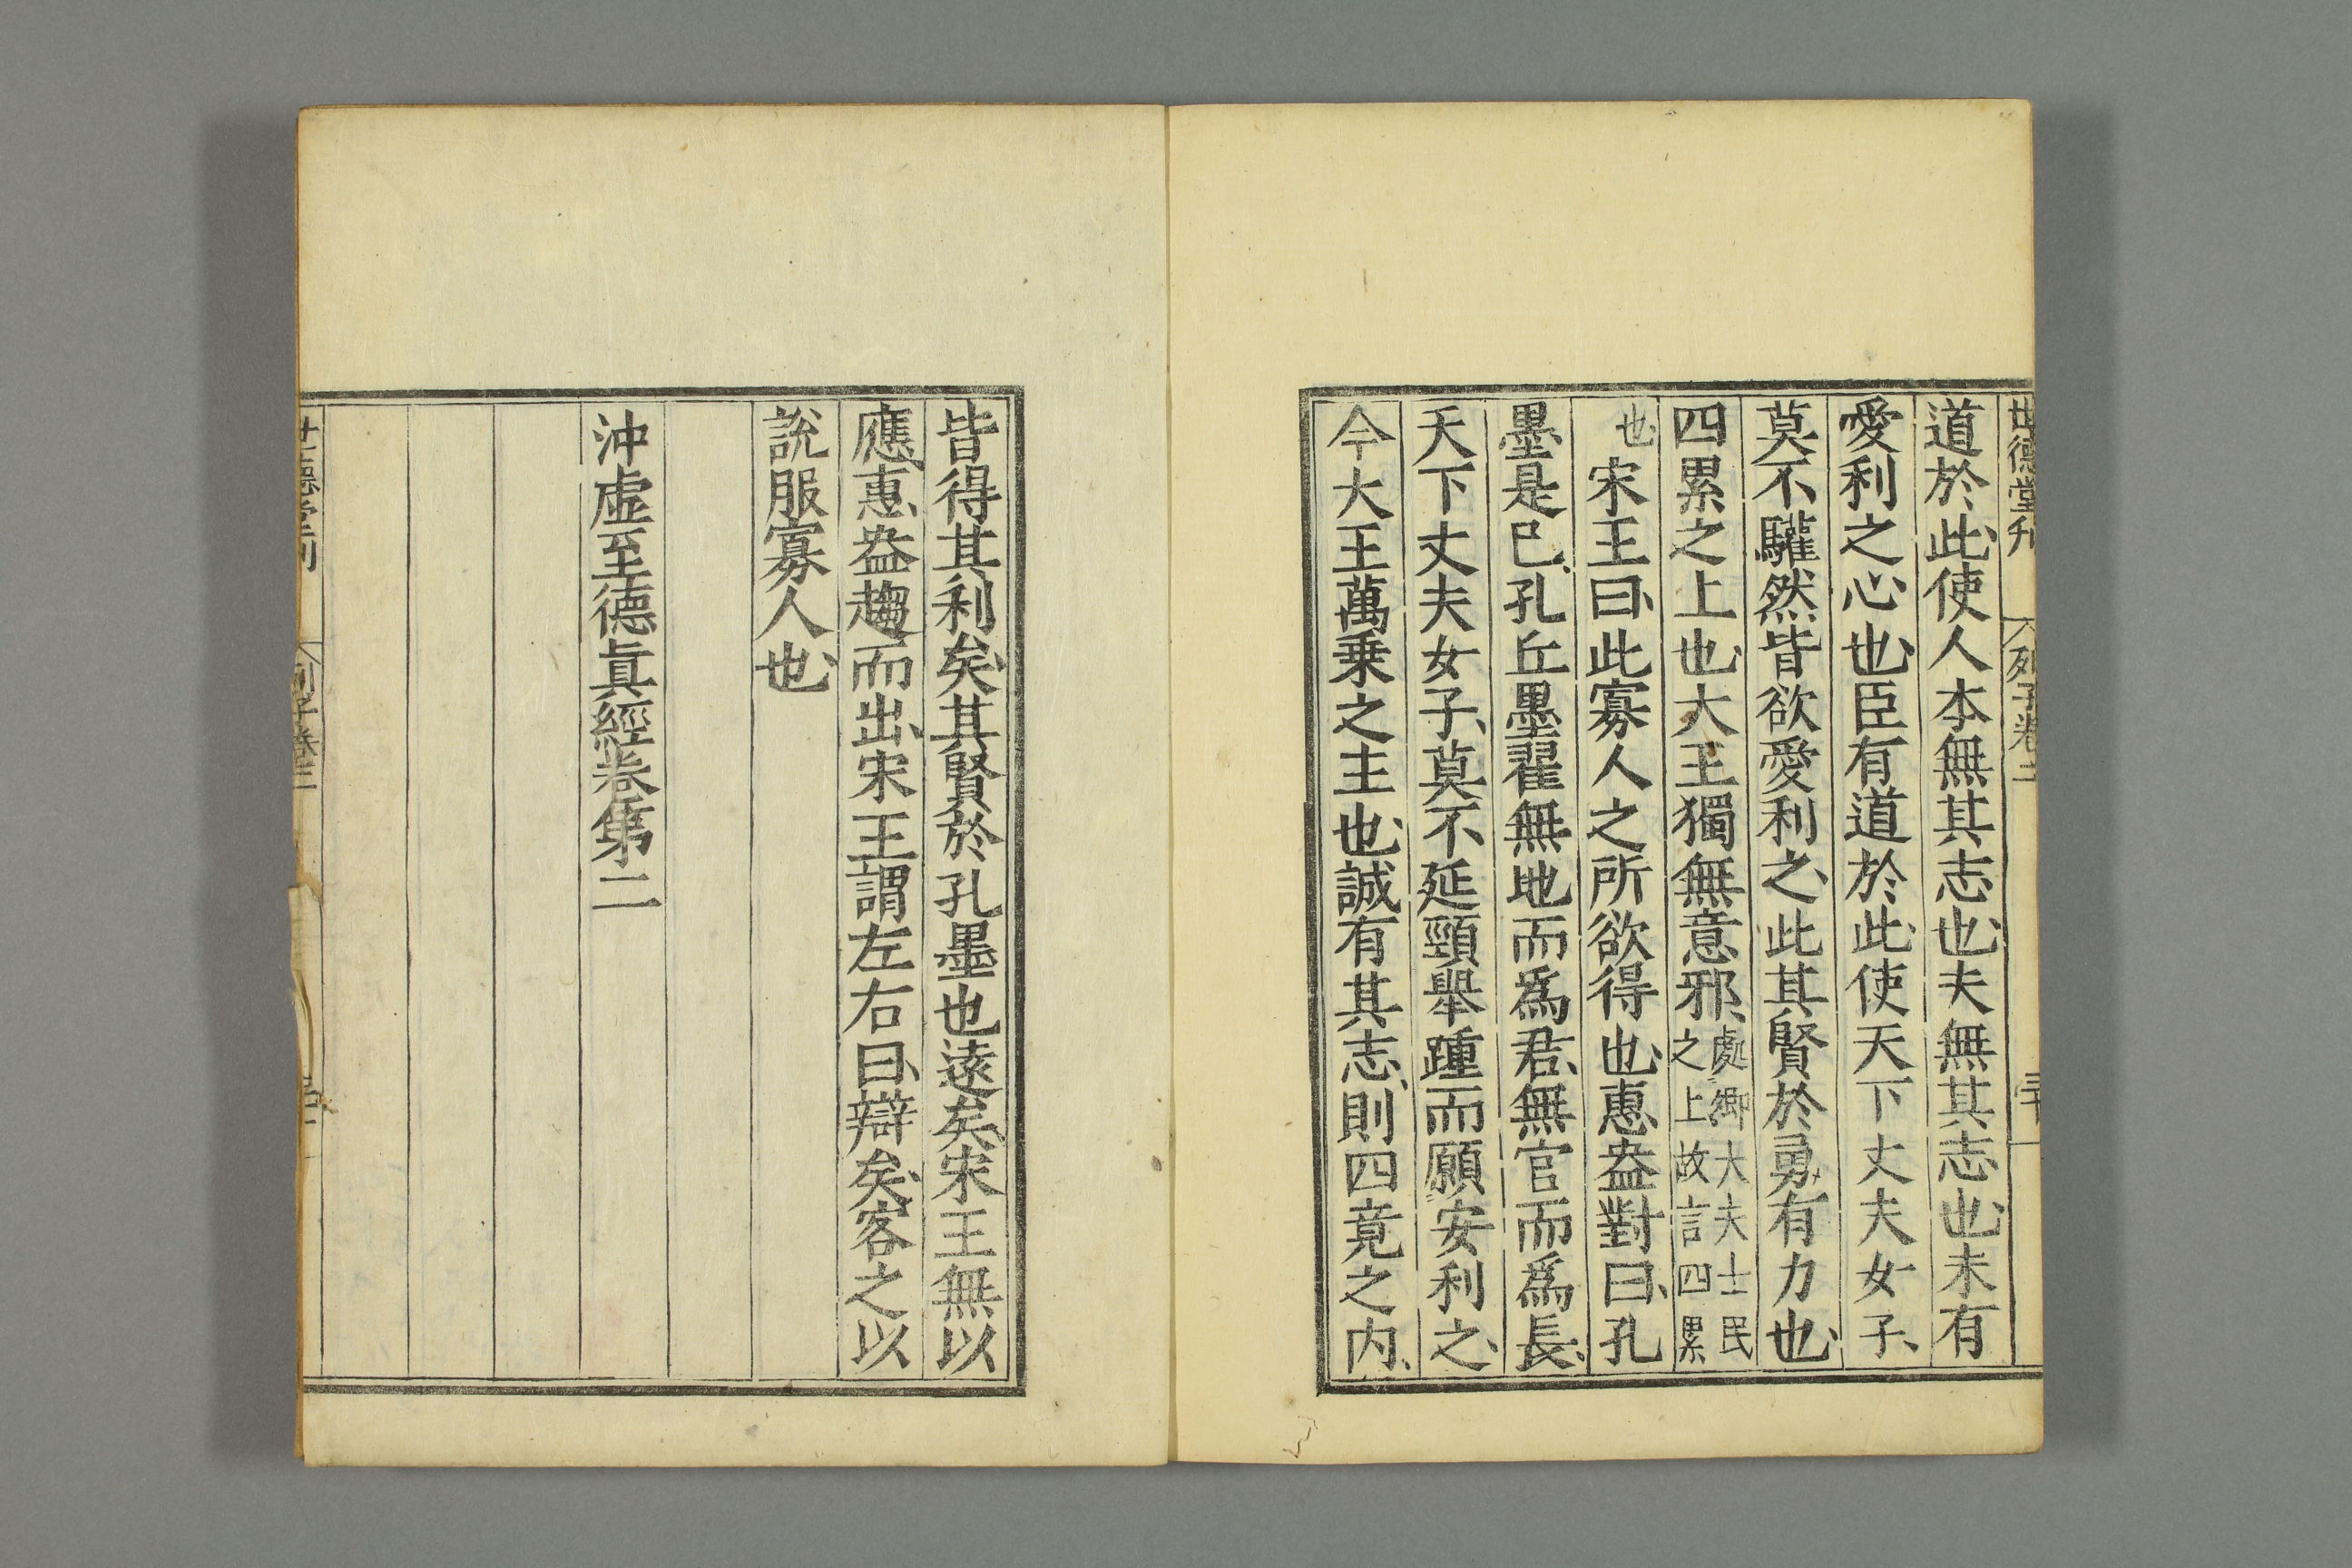 世德堂刊 列子卷二
道於此使人本無其志也夫無其志也未有
愛利之心也臣有道於此使天下丈夫女子
莫不驩然皆欲愛利之此其賢於勇有力也
四累之上也大王獨無意邪處卿大夫士民
之上故言四累
也宋王曰此寡人之所欲得也惠盎對曰孔
墨是已孔丘墨翟無地而爲君無官而爲長
天下丈夫女子莫不延頸舉踵而願安利之
今大王萬乗之主也誠有其志則四竟之内
皆得其利矣其賢於孔墨也遠矣宋王無以
應惠盎趨而出宋王謂左右曰辯矣客之以
說服寡人也
沖虛至德眞經卷第二